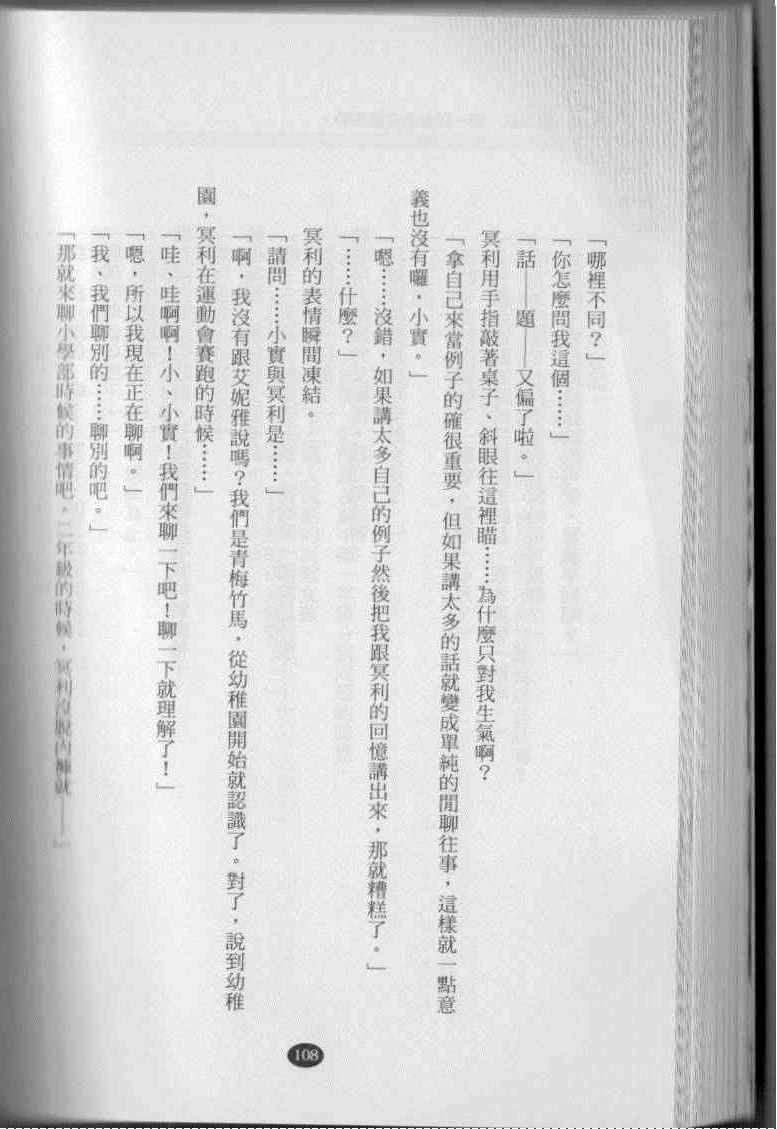 「哪裡不同？」
「你怎麼問我這個……」
「話——題——又偏了啦。」
冥利用手指敲著桌子、斜眼往這裡瞄……為什麼只對我生氣啊？
「拿自己來當例子的確很重要，但如果講太多的話就變成單純的閒聊往事，這樣就一點意
義也沒有囉，小實。」
「嗯……沒錯，如果講太多自己的例子然後把我跟冥利的回憶講出來，那就糟糕了。」
「……什麼？」
冥利的表情瞬間凍結。
「請問……小實與冥利是……」
「啊，我沒有跟艾妮雅說嗎？我們是青梅竹馬，從幼稚園開始就認識了。對了，說到幼稚
園，冥利在運動會賽跑的時候……」
「哇、哇啊啊！小、小實！我們來聊一下吧！聊一下就理解了！」
「嗯，所以我現在正在聊啊。」
「我、我們聊別的……聊別的吧。」
「那就來聊小學部時候的事情吧，二年級的時候，冥利沒脫內褲就——」
108